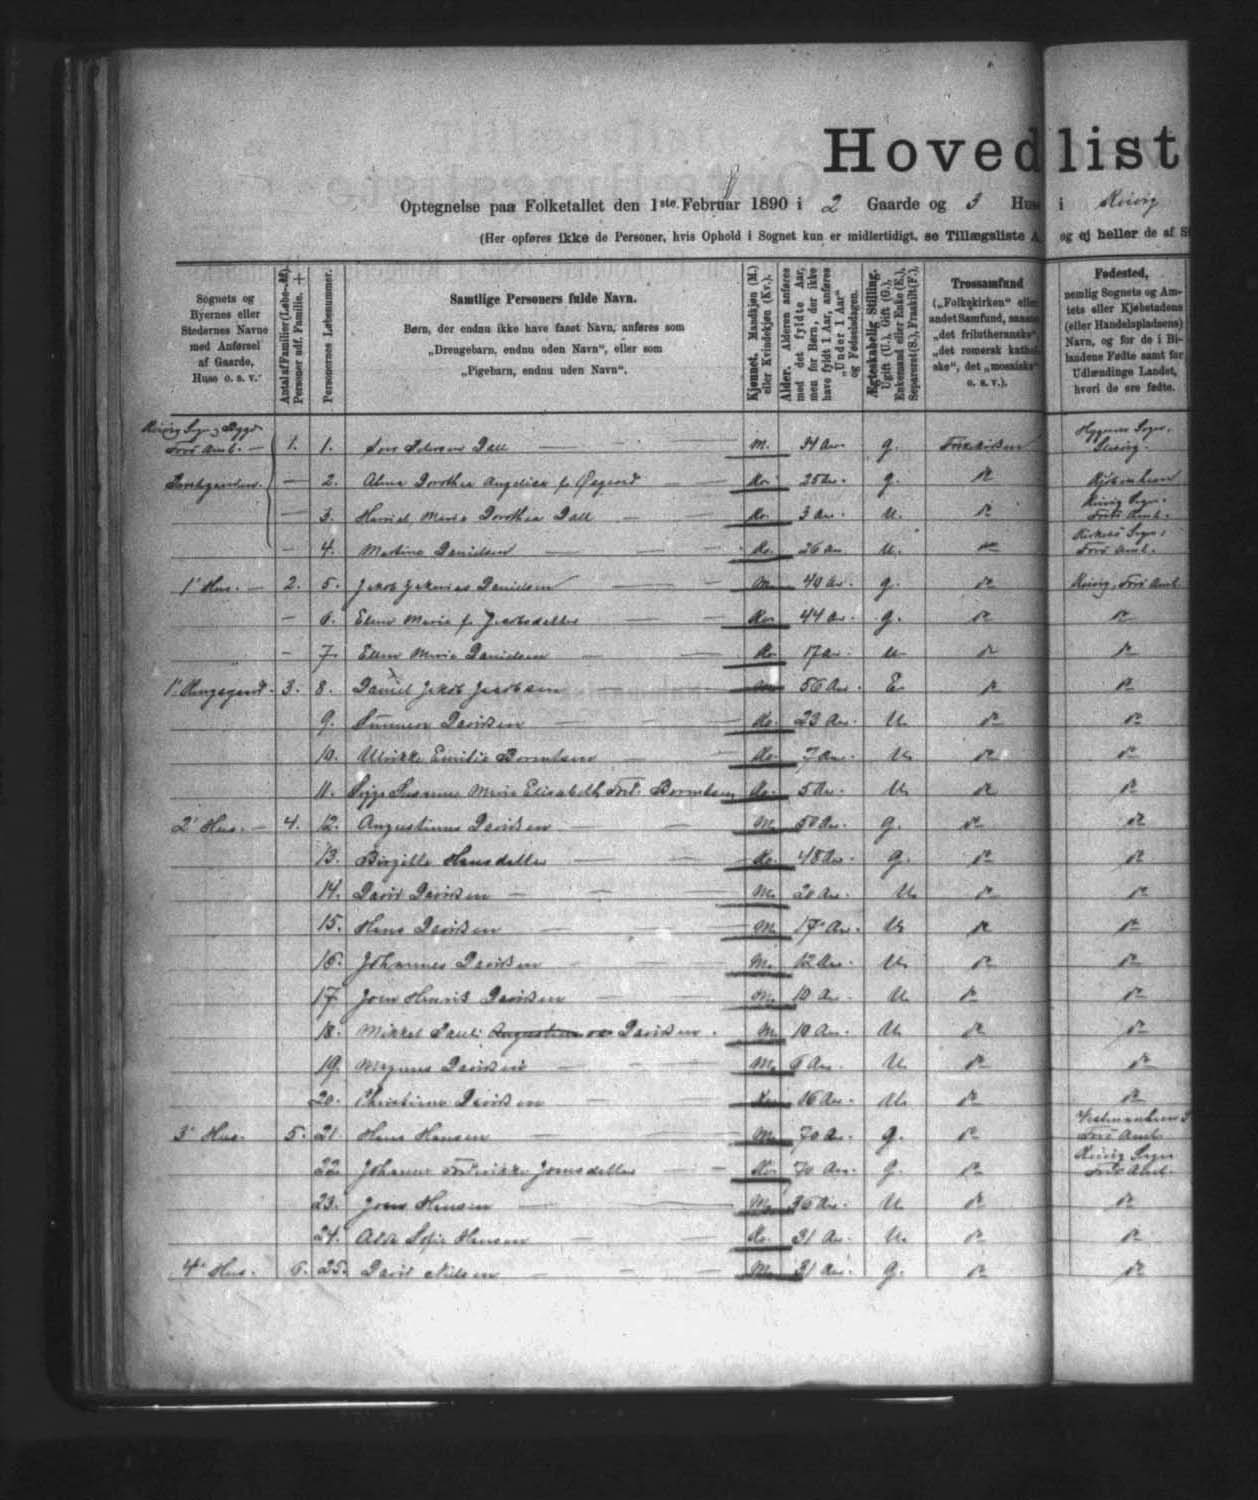 Hovedlist
Optegnelse paa Folketallet den 1ste Februar 1890 i 2 Gaarde og 3 Huse i Kvivig
(Her opføres ikke de Personer, hvis Ophold i Sognet kun er midlertidigt, se Tillægsliste A og ej heller de af S
Sognets og Byernes eller Stedernes Navne med Anførsel af Gaarde, Huse o. s. v.
Antal af Familier (Løbe-No). Personer adf. Familie. +
Personernes Løbenummer.
Samtlige Personers fulde Navn.
Børn, der endnu ikke have faaet Navn, anføres som
„Drengebarn, endnu uden Navn“, eller som
„Pigebarn, endnu uden Navn“.
Kjønnet. Mandkjøn (M.) eller Kvindekjøn (Kv.).
Alder. Alderen anføres med det fyldte Aar, men for Børn, der ikke have fyldt 1 Aar, anføres „Under 1 Aar“ og Fødselsdagen.
Ægteskabelig Stilling. Ugift (U.), Gift (G.), Enkemand eller Enke (E.), Separeret (S.), Fraskilt (F.).
Trossamfund
(„Folkekirken“ eller
andet Samfund, saasom
„det frilutheranske“
„det romersk kathol-
ske“, det „mosaiske“
o. s. v.).
Fødested,
nemlig Sognets og Am-
tets eller Kjøbstadens
(eller Handelspladsens)
Navn, og for de i Bi-
landene Fødte samt for
Udlændinge Landet,
hvori de ere fødte.
Kvivig Sogn, Bygd
Færø Amt. 1. 1. Dall M. 34 Aar. g. Folkekirken
2. Alma Dorothea Angelica f. Øegaard Kv. 25 Aar. g. do Kjøbenhavn
3. Harriet Marie Dorothea Dall Kv. 3 Aar. U. do Kvivig Sogn, Færø Amt.
4. Martine Danielsen Kv. 26 Aar. U. do Sogn, Færø Amt.
1' Hus. 2. 5. Jakob Danielsen M. 40 Aar. g. do Kvivig, Færø Amt
6. Elene Marie f. Jacobsdatter Kv. 44 Aar. g. do do
7. Ellen Marie Danielsen Kv. 17 Aar. U. do do
1' Kongsgaard. 3. 8. Daniel Jakob Jacobsen M. 56 Aar. E. do do
9. Sunneva Davidsen Kv. 23 Aar. U. do do
10. Ulrikke Emilie Berentsen Kv. 7 Aar. U. do do
11. Susanne Marie Elisabeth Berentsen Kv. 5 Aar. U. do do
2' Hus. 4. 12. Augustinus Davidsen M. 50 Aar. g. do do
13. Birgitte Hansdatter Kv. 48 Aar. g. do do
14. David Davidsen M. 20 Aar. U. do do
15. Hans Davidsen M. 17 Aar. U. do do
16. Johannes Davidsen M. 12 Aar. U. do do
17. Joen Henrik Davidsen M. 10 Aar. U. do do
18. Mikkel Pauli Davidsen. M. 10 Aar. U. do do
19. Magnus Davidsen M. 6 Aar. U. do do
20. Christine Davidsen Kv. 16 Aar. U. do do
3' Hus. 5. 21. Hans Hansen M. 70 Aar. g. do Vestmanhavn S Færø Amt.
22. Johanne Joensdatter Kv. 70 Aar. g. do Kvivig Sogn Færø Amt.
23. Joen Hansen M. 36 Aar. U. do do
24. Sofie Hansen Kv. 31 Aar. U. do do
4' Hus. 6. 25. David Nielsen M. 31 Aar. g. do do